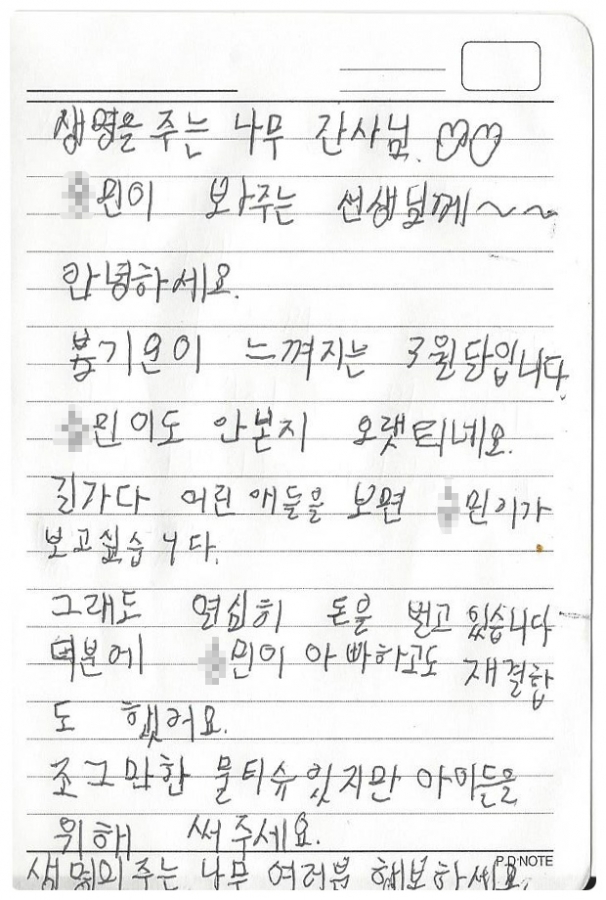 생명을 주는 나무 간사님.
민이 보아주는 선생님께~~
안녕하세요.
봄기운이 느껴지는 3월달입니다.
민이도 안본지 오랫되네요.
길가다 어린 애들을 보면 민이가
보고싶습니다.
그래도 열심히 돈을 벌고 있습니다
덕분에 민이 아빠하고도 재결합
도 했어요.
조그만한 물티슈 있지만 아이들을
위해 써주세요.
생명의 주는 나무 여러분 행보하세요.
P.D·NOTE